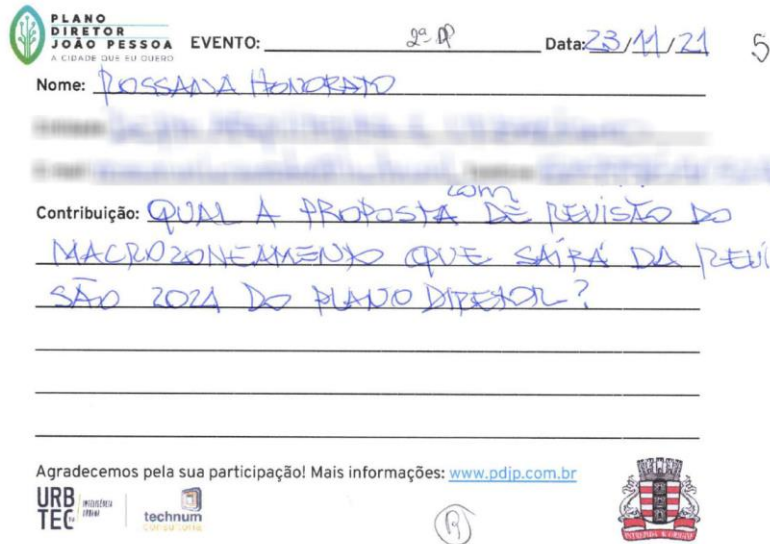 PLANO
DIRETOR
JOÃO PESSOA
A CIDADE QUE EU QUERO
EVENTO: 2ª DP Data: 23/11/21 5
Nome: ROSSANA HONORATO
com
Contribuição: QUAL A PROPOSTA DE REVISÃO DO
MACROZONEAMENTO QUE SAÍRA DA REVI
SÃO 2021 DO PLANO DIRETOR?
Agradecemos pela sua participação! Mais informações: www.pdjp.com.br
URB
TEC
INTELIGÊNCIA
URBANA
technum
CONSULTORIA
INTREPIDA AB ORIGINE